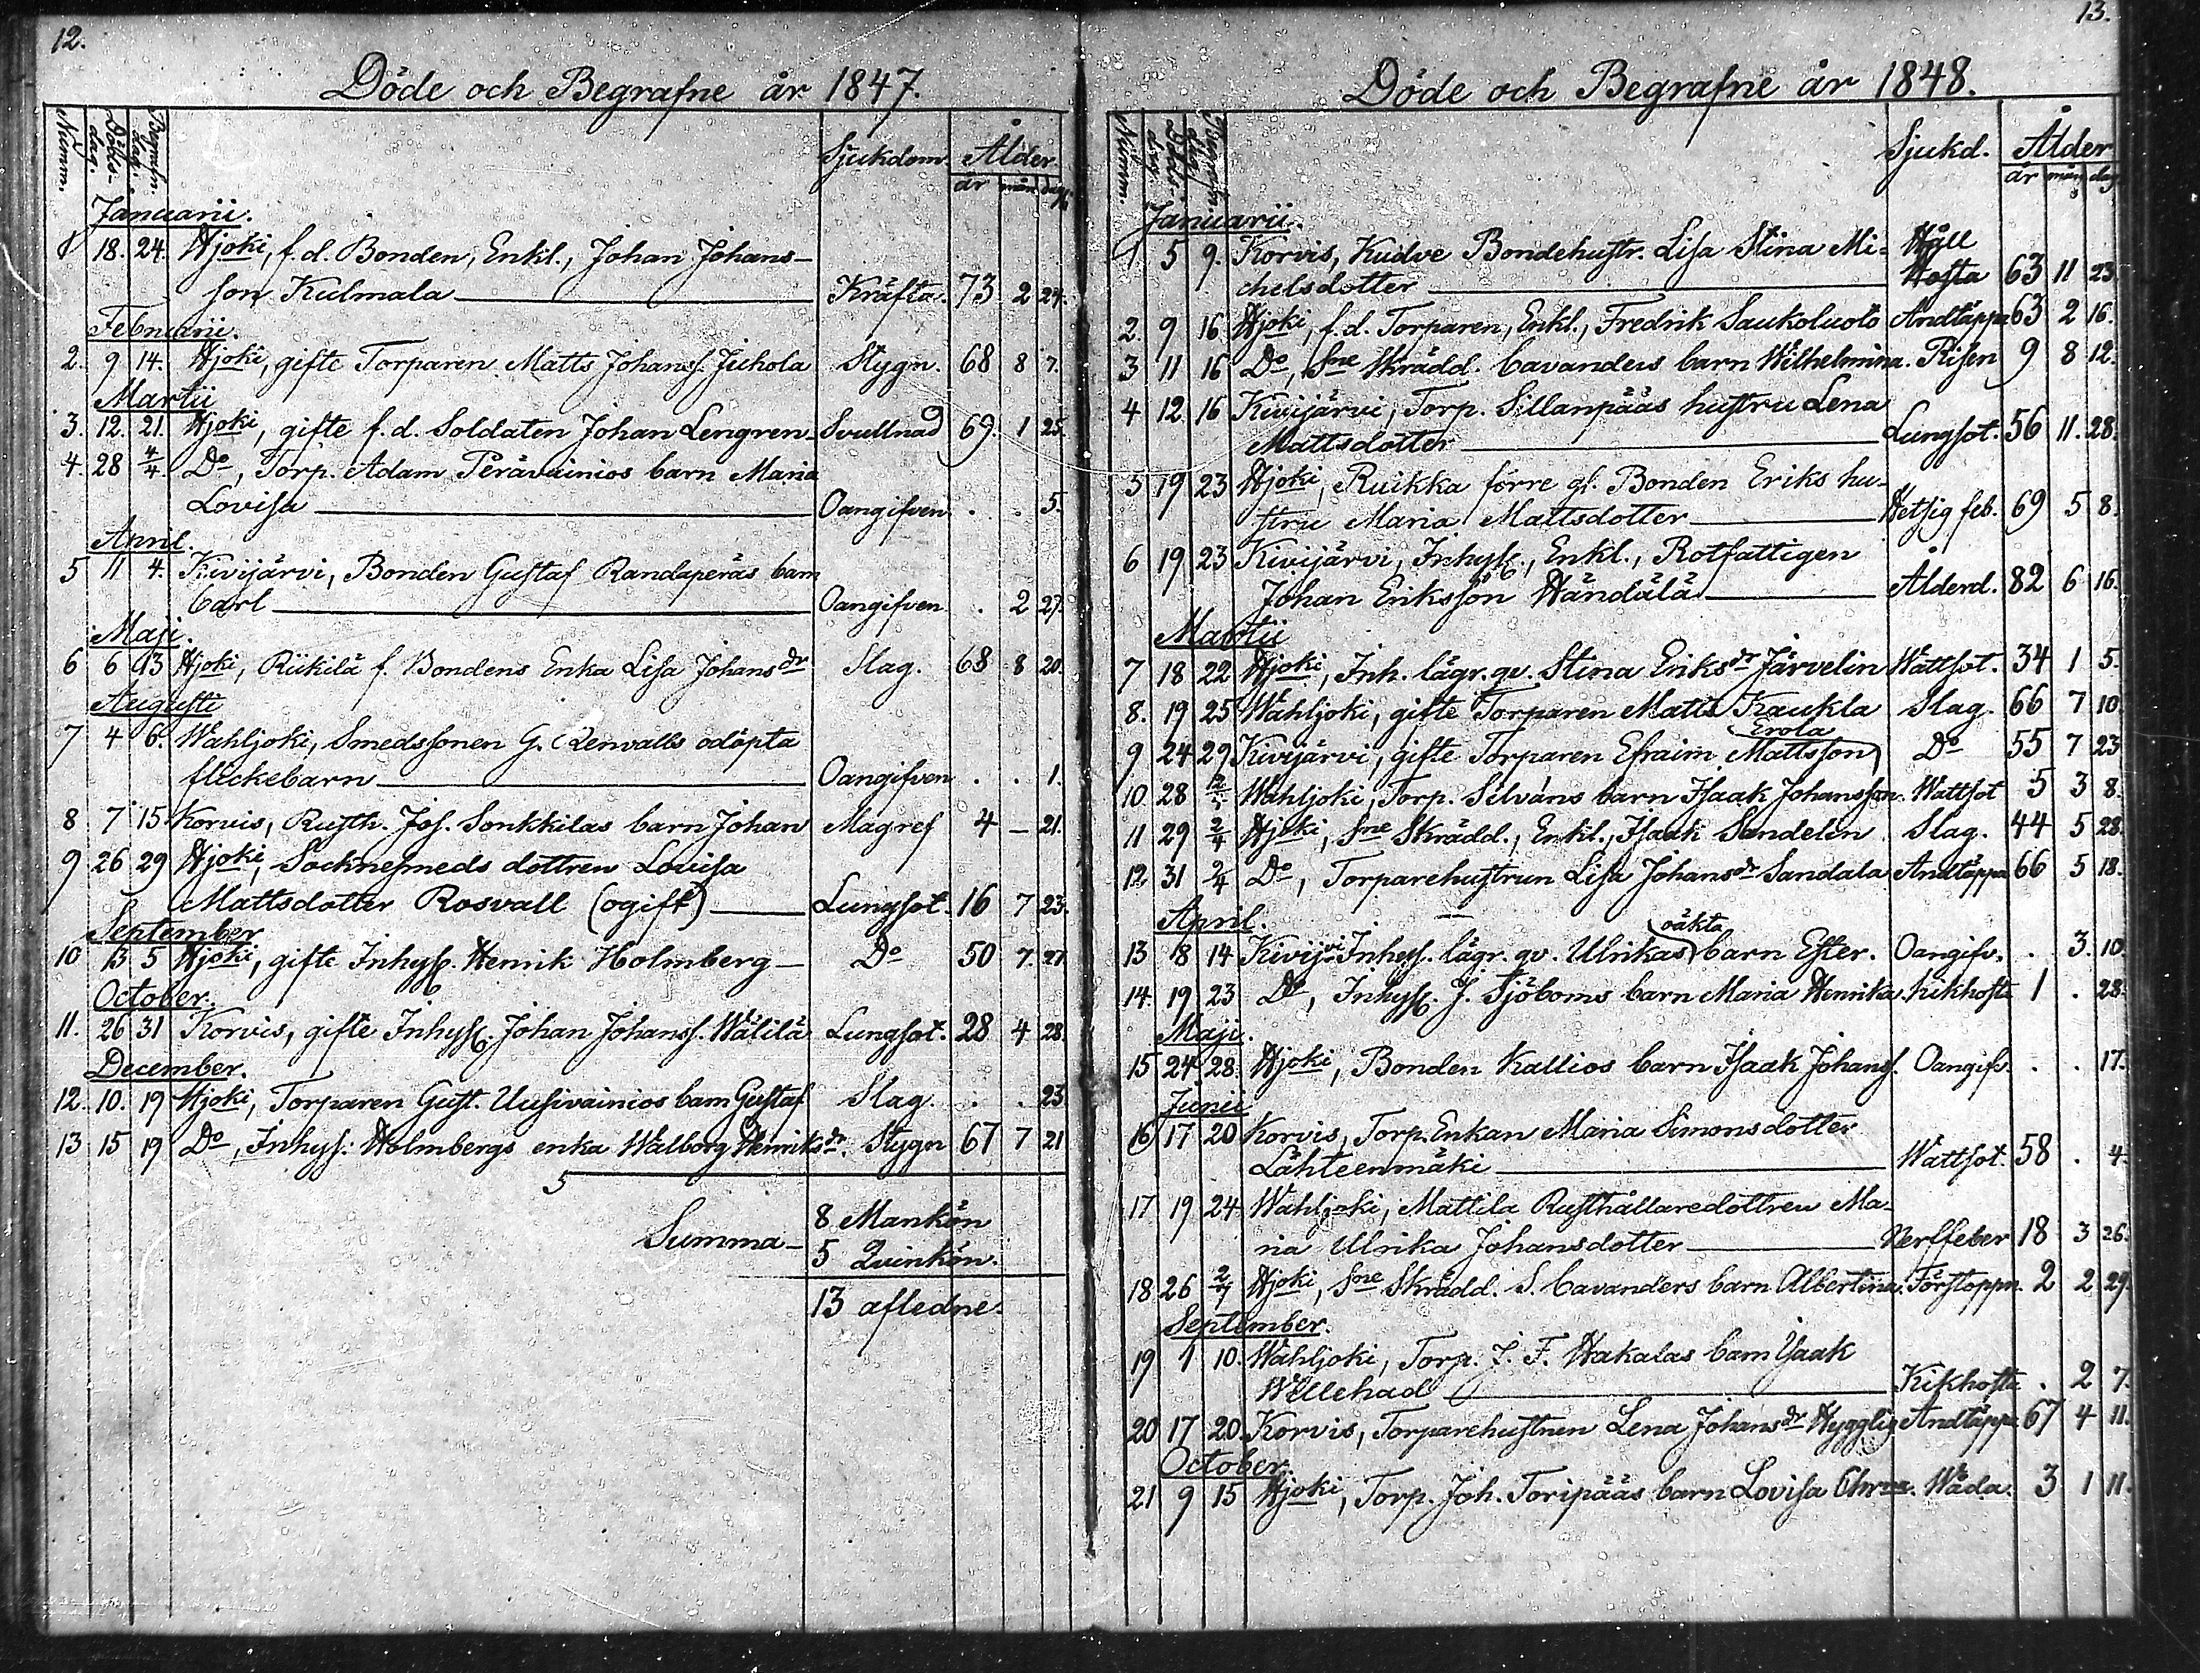 12.
Döde och Begrafne år 1847.
Numm. Döds-dag. Begrafn. dag. Sjukdom. Ålder.
år mån dag
Januarii.
1 18. 24. Hjoki, f. d. Bonden, Enkl., Johan Johans-
son Kulmala Kräfta. 73 2 24.
Februarii.
2. 9 14. Hjoki, gifte Torparen Matts Johanss. Jichola Stygn. 68 8 7.
Martii
3. 12. 21. Hjoki, gifte f. d. Soldaten Johan Lengren Svullnad 69. 1 25.
4. 28 4/4. Do, Torp. Adam Perävainios barn Maria
Lovisa Oangifven . . 5.
April.
5 11 4. Kivijärvi, Bonden Gustaf Randaperäs barn
Carl Oangifven . 2 27.
Maji.
6 6 13 Hjoki, Riikilä f. Bondens Enka Lisa Johansdr Slag. 68 8 20.
Augusti
7 4 6. Wahljoki, Smedssonen G. Renvalls odöpta
flickebarn Oangifven . . 1.
8 7 15. Korvis, Rusth. Jos. Sonkkilas barn Johan Magref 4 – 21.
9 26 29 Hjoki, Socknesmeds dottren Lovisa
Mattsdotter Rosvall (ogift) Lungsot. 16 7 23.
September
10 13 5 Hjoki, gifte Inhyss. Henrik Holmberg Do 50 7. 27
October.
11. 26 31 Korvis, gifte Inhyss. Johan Johanss. Wälilä Lungsot. 28 4 28.
December.
12. 10. 19 Hjoki, Torparen Gust. Uusivainios barn Gustaf Slag. . . 23
13 15 19 Do, Inhyss: Holmbergs enka Walborg Henriksdr. Stygn 67 7 21
5
Summa 8 Mankön
5 Qvinkön.
13 afledne.
13.
Döde och Begrafne år 1848.
Numm. Döds-dag. Begrafn. dag Sjukd. Ålder
år mån dag
Januarii.
1 5 9. Korvis, Kudve Bondehustr. Lisa Stina Mi- Håll
chelsdotter Hosta 63 11 23.
2. 9 16 Hjoki, f. d. Torparen, Enkl., Fredrik Saukoluoto Andtäppa 63 2 16.
3 11 16 Do, Sne Skrädd. Cavanders barn Wilhelmina. Risen 9 8 12.
4 12 16 Kivijärvi, Torp. Sillanpääs hustru Lena
Mattsdotter Lungsot. 56 11. 28.
5 19 23 Hjoki, Ruikka förre gl. Bonden Eriks hu-
stru Maria Mattsdotter Hetsig feb. 69 5 8.
6 19 23 Kivijärvi, Inhyss., Enkl., Rotfattigen
Johan Eriksson Händälä Ålderd. 82 6 16.
Martii
7 18 22 Hjoki, Inh. lägr. qv. Stina Eriksdr Järvelin Wattsot. 34 1 5.
8. 19 25 Wahljoki, gifte Torparen Matts Kaukla Slag. 66 7 10
Erola
9 24 29 Kivijärvi, gifte Torparen Efraim Mattsson Do 55 7 23
10 28 2/5 Wahljoki, Torp. Silvans barn Isaak Johansson. Wattsot 5 3 8.
11 29 2/4 Hjoki, Sne Skrädd., Enkl., Isaak Sandelin Slag. 44 5 28
12 31 2/4 Do, Torparehustrun Lisa Johansdr Sandala Andtäppa 66 5 18.
April.
oäkta
13 18 14 Kivijvi Inhyss. lägr. qv. Ulrikas barn Ester. Oangifv. . 3. 10
14. 19 23 Do, Inhyss. J. Sjöboms barn Maria Henrika. Kikhosta 1 . 28.
Maji.
15 24 28 Hjoki, Bonden Kallios barn Isaak Johanss. Oangifv. . . 17.
Junii
16 17 20 Korvis, Torp. Enkan Maria Simonsdotter
Lähteenmäki Wattsot. 58 . 4.
17 19 24 Wahljoki, Mattila Rusthållaredottren Ma-
ria Ulrika Johansdotter Nerffeber 18 3 26.
18 26 2/7 Hjoki, Sne Skrädd. S. Cavanders barn Albertina. Förstoppn. 2 2 29.
September.
19 1 10. Wahljoki, Torp. J. F. Hakalas barn Isaak
Willehad Kikhosta . 2 7.
20 17 20 Korvis, Torparehustrun Lena Johansdr Hygglig Andtäppa 67 4 11.
October.
21 9 15 Hjoki, Torp. Joh. Toripääs barn Lovisa Wåda. 3 1 11.